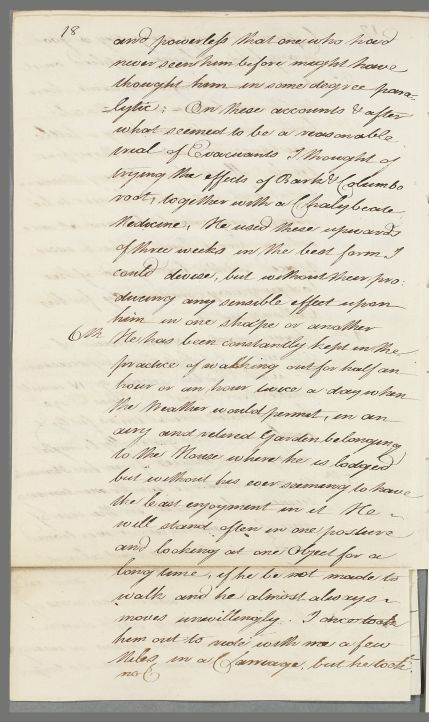 18
and powerless that one who had
never seen him before might have
thought him in some degree para-
-lytic; - On these accounts & after
what seemed to be a reasonable
trial of Evacuants I thought of
trying the effects of Bark & Columbo
root, together with a Chalybeate
Medicine, He used these upwards
of three weeks in the best form I
could devise, but without their pro-
ducing any sensible effect upon
him in one shape or another
6th He has been constantly kept in the
practice of walking out for half an
hour or an hour twice a day when
the Weather would permit, in an
airy and retired Garden belonging
to the House where he is lodged
but without his ever seeming to have
the least enjoyment in it He
will stand often in one posture
and looking at one Object for a
long time, if he be not made to
walk and he almost always
moves unwillingly. I once took
him out to ride with me a few
Miles in a Carriage, but he took
no